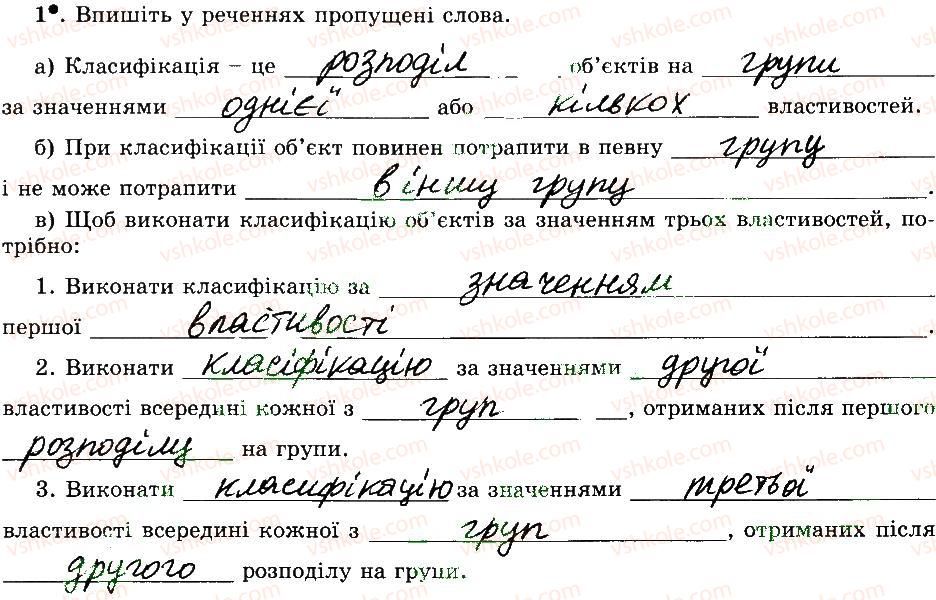 1•. Впишіть у реченнях пропущені слова.
а) Класифікація – це розподіл об'єктів на групи
за значеннями однієї або кількох властивостей.
б) При класифікації об'єкт повинен потрапити в певну групу
і не може потрапити в іншу групу.
в) Щоб виконати класифікацію об'єктів за значенням трьох властивостей, по-
трібно:
1. Виконати класифікацію за значенням
першої властивості.
2. Виконати класіфікацію за значеннями другої
властивості всередині кожної з груп, отриманих після першого
розподілу на групи.
3. Виконати класифікацію за значеннями третьої
властивості всередині кожної з груп, отриманих після
другого розподілу на групи.